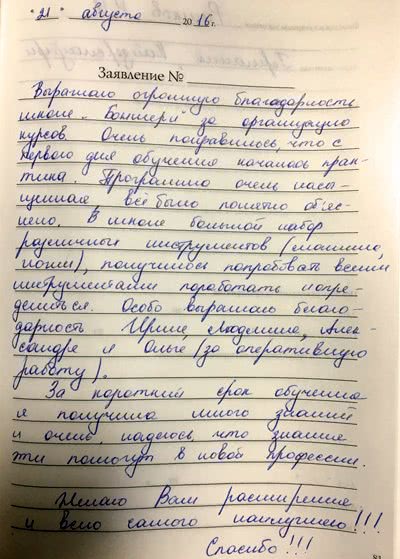 "21" августа 2016 г.
Заявление №
Выражаю огромную благодарность
школе за организацию
курсов. Очень понравилось, что с
первого дня обучения началась прак-
тика. Программа очень насы-
щенная, всё было понятно об'яс-
нено. В школе большой набор
различных инструментов (машинки,
ножи), получилось попробовать всеми
инструментами поработать и опре-
делиться. Особо выражаю благо-
дарность Ирине, Людмиле, Алек-
сандре и Ольге (за оперативную
работу).
За короткий срок обучения
я получила много знаний
и очень надеюсь, что знания
эти помогут в новой профессии.
Желаю Вам расширения
и всего самого наилучшего!!!
Спасибо!!!